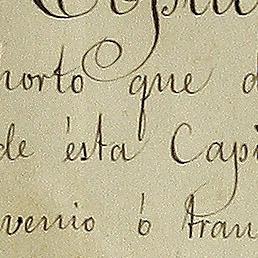 horto que d
de ésta Capi
venio ó tran